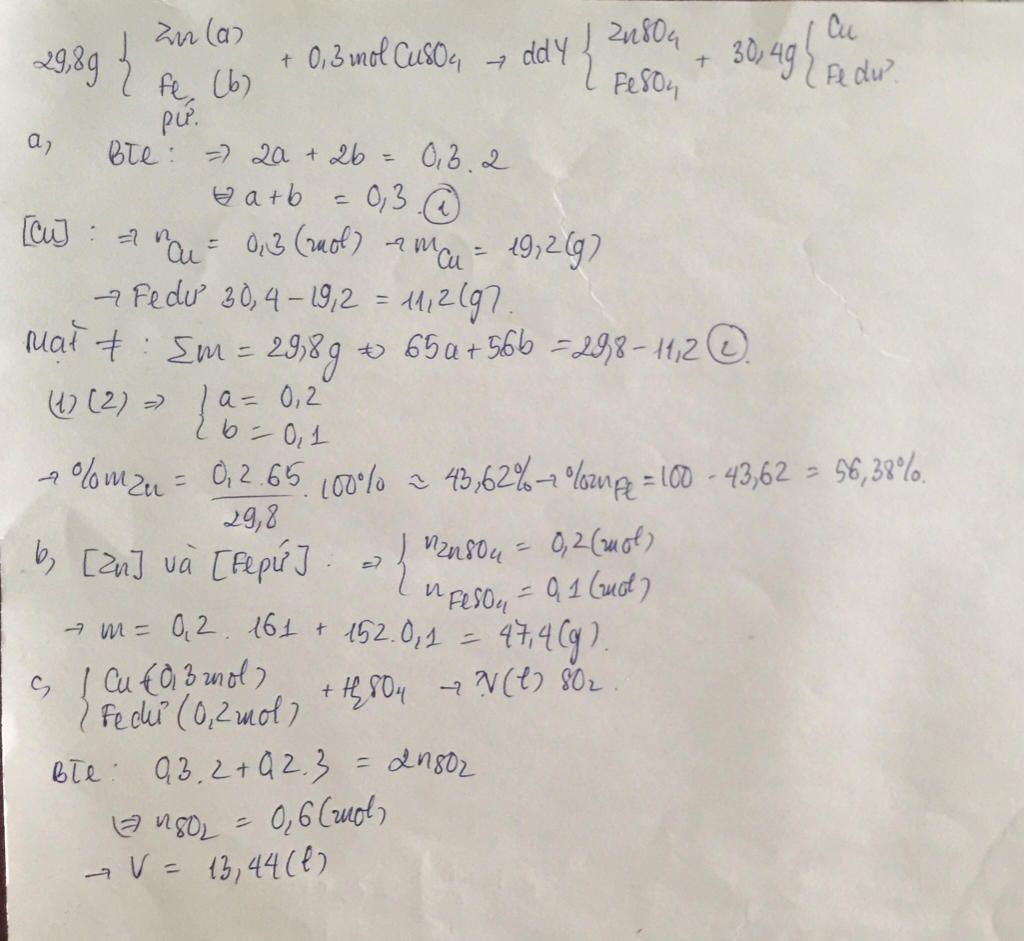 29,8g { Zn (a) Fe pứ. (b) + 0,3 mol CuSO4 → dd Y { ZnSO4 FeSO4 + 30,4g { Cu Fe dư.
a, BTe: => 2a + 2b = 0,3.2
<=> a + b = 0,3 (1)
[Cu]: => nCu = 0,3 (mol) → mCu = 19,2 (g)
→ Fe dư 30,4 - 19,2 = 11,2 (g).
Mặt ≠: Σm = 29,8g <=> 65a + 56b = 29,8 - 11,2 (2).
(1) (2) => { a = 0,2 b = 0,1
→ %mZn = 0,2.65/29,8 . 100% ≈ 43,62% → %mFe = 100 - 43,62 = 56,38%.
b, [Zn] và [Fe pứ]: => { nZnSO4 = 0,2 (mol) nFeSO4 = 0,1 (mol)
→ m = 0,2. 161 + 152.0,1 = 47,4 (g).
c, { Cu (0,3 mol) Fe dư (0,2 mol) + H2SO4 → V(l) SO2.
BTe: 0,3.2 + 0,2.3 = 2nSO2
<=> nSO2 = 0,6 (mol)
→ V = 13,44 (l)